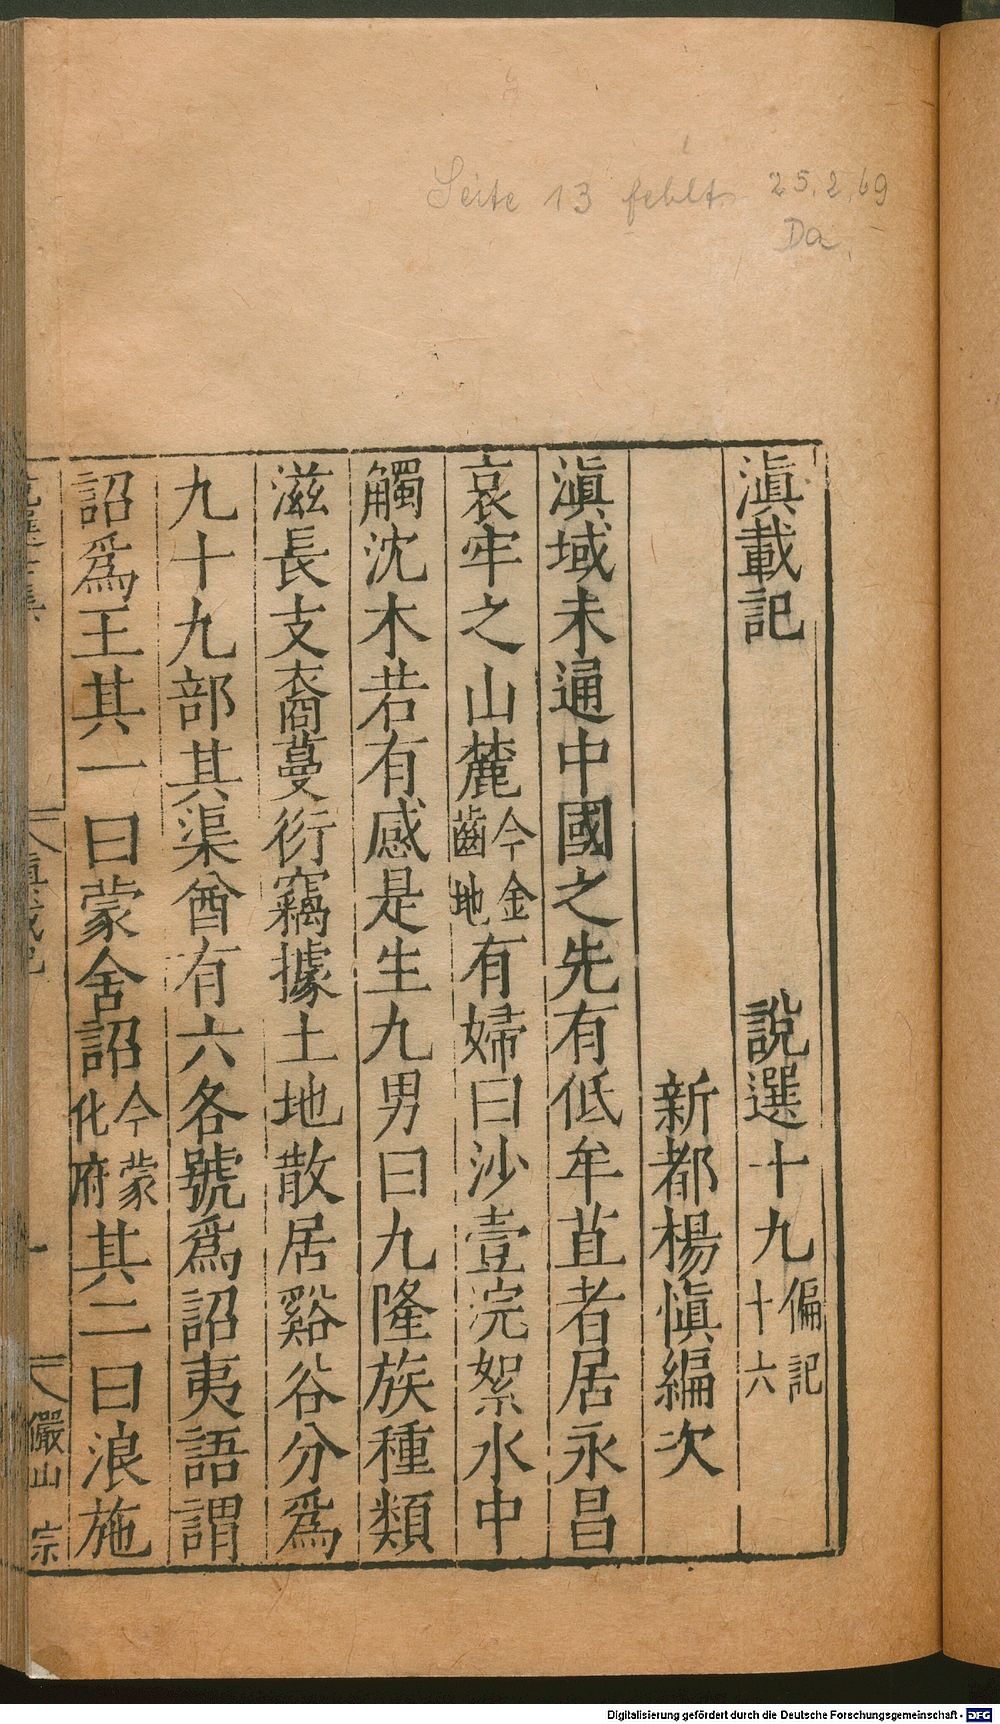 Seite 13 fehlt 25.2.69
Da
滇載記 說選十九偏記十六
新都楊慎編次
滇域未通中國之先有低牟苴者居永昌
哀牢之山麓今金齒地有婦曰沙壹浣絮水中
觸沈木若有感是生九男曰九隆族種類
滋長支裔蔓衍竊據土地散居谿谷分爲
九十九部其渠酋有六各號爲詔夷語謂
詔爲王其一曰蒙舍詔今蒙化府其二曰浪施
儼山 宗
Digitalisierung gefördert durch die Deutsche Forschungsgemeinschaft - DFG